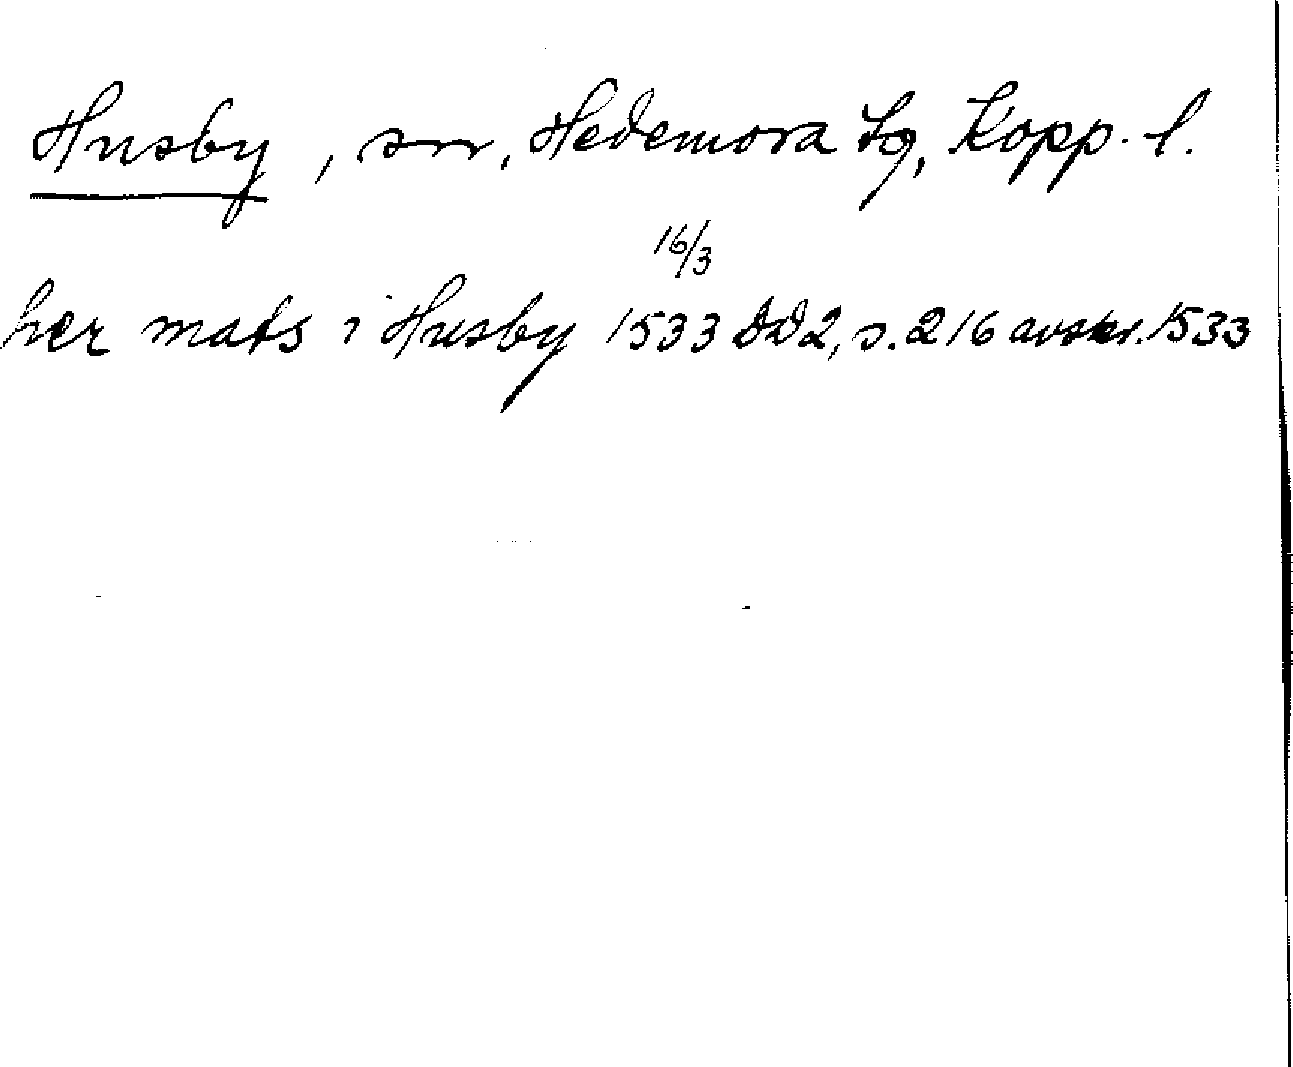 Husby, sn, Hedemora tg, Kopp. l.
16/3
her mats i Husby 1533 DD2, s. 216 avskr. 1533